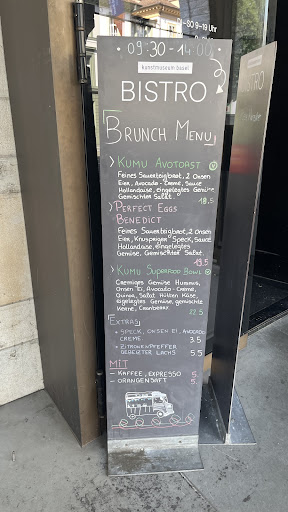 DI-SO 9-19 Uhr
09:30 - 14:00
kunstmuseum basel
BISTRO
BRUNCH MENU
> KUMU AVOTOAST
FEINES SAUERTEIGBROT, 2 ONSEN
EIER, AVOCADO-CREME, SAUCE
HOLLANDAISE, EINGELEGTES GEMÜSE
GEMISCHTER SALAT.
18.5
> PERFECT EGGS
BENEDICT
FEINES SAUERTEIGBROT, 2 ONSEN
EIER, KNUSPRIGER SPECK, SAUCE
HOLLANDAISE, EINGELEGTES
GEMÜSE, GEMISCHTER SALAT.
19.5
> KUMU SUPERFOOD BOWL
CREMIGES GEMÜSE HUMMUS,
ONSEN EI, AVOCADO-CREME,
QUINOA, SALAT, HÜTTEN KÄSE,
EINGELEGTES GEMÜSE, GEMISCHTE
KERNE, CRANBERRY
22.5
EXTRAS:
+ SPECK, ONSEN EI, AVOCADO-
CREME 3.5
+ ZITRONENPFEFFER
GEBEIZTER LACHS 5.5
MIT
- KAFFEE, ESPRESSO 5.
- ORANGENSAFT 5.
BISTRO